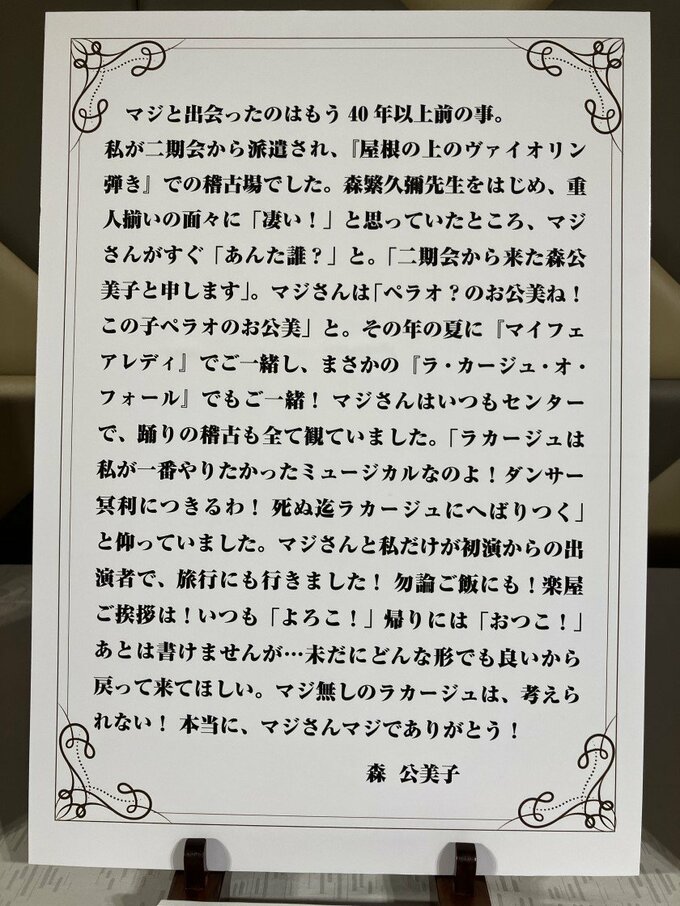 マジと出会ったのはもう40年以上前の事。
私が二期会から派遣され、『屋根の上のヴァイオリン
弾き』での稽古場でした。森繁久彌先生をはじめ、重
人揃いの面々に「凄い！」と思っていたところ、マジ
さんがすぐ「あんた誰？」と。「二期会から来た森公
美子と申します」。マジさんは「ペラオ？のお公美ね！
この子ペラオのお公美」と。その年の夏に『マイフェ
アレディ』でご一緒し、まさかの『ラ・カージュ・オ・
フォール』でもご一緒！ マジさんはいつもセンター
で、踊りの稽古も全て観ていました。「ラカージュは
私が一番やりたかったミュージカルなのよ！ダンサー
冥利につきるわ！ 死ぬ迄ラカージュにへばりつく」
と仰っていました。マジさんと私だけが初演からの出
演者で、旅行にも行きました！ 勿論ご飯にも！楽屋
ご挨拶は！いつも「よろこ！」帰りには「おつこ！」
あとは書けませんが…未だにどんな形でも良いから
戻って来てほしい。マジ無しのラカージュは、考えら
れない！ 本当に、マジさんマジでありがとう！
森 公美子